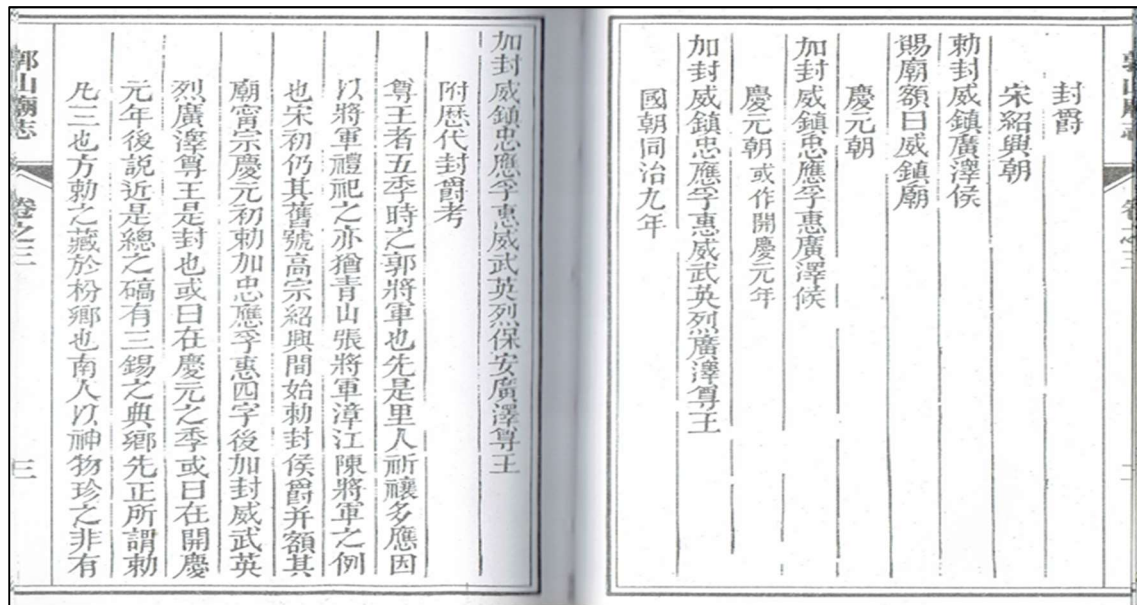 封爵
宋紹興朝
勅封威鎮廣澤侯
賜廟額曰威鎮廟
慶元朝
加封威鎮忠應孚惠廣澤侯
慶元朝或作開慶元年
加封威鎮忠應孚惠威武英烈廣澤尊王
國朝同治九年
加封威鎮忠應孚惠威武英烈保安廣澤尊王
附歴代封爵考
尊王者五季時之郭將軍也先是里人祈禳多應因
以將軍禮祀之亦猶青山張將軍漳江陳將軍之例
也宋初仍其舊號高宗紹興間始勅封侯爵并額其
廟甯宗慶元初勅加忠應孚惠四字後加封威武英
烈廣澤尊王是封也或曰在慶元之季或曰在開慶
元年後説近是總之碻有三錫之典鄉先正所謂勅
凡三也方勅之藏於枌鄉也南人以神物珍之非有
郭山廟志
卷之三
三